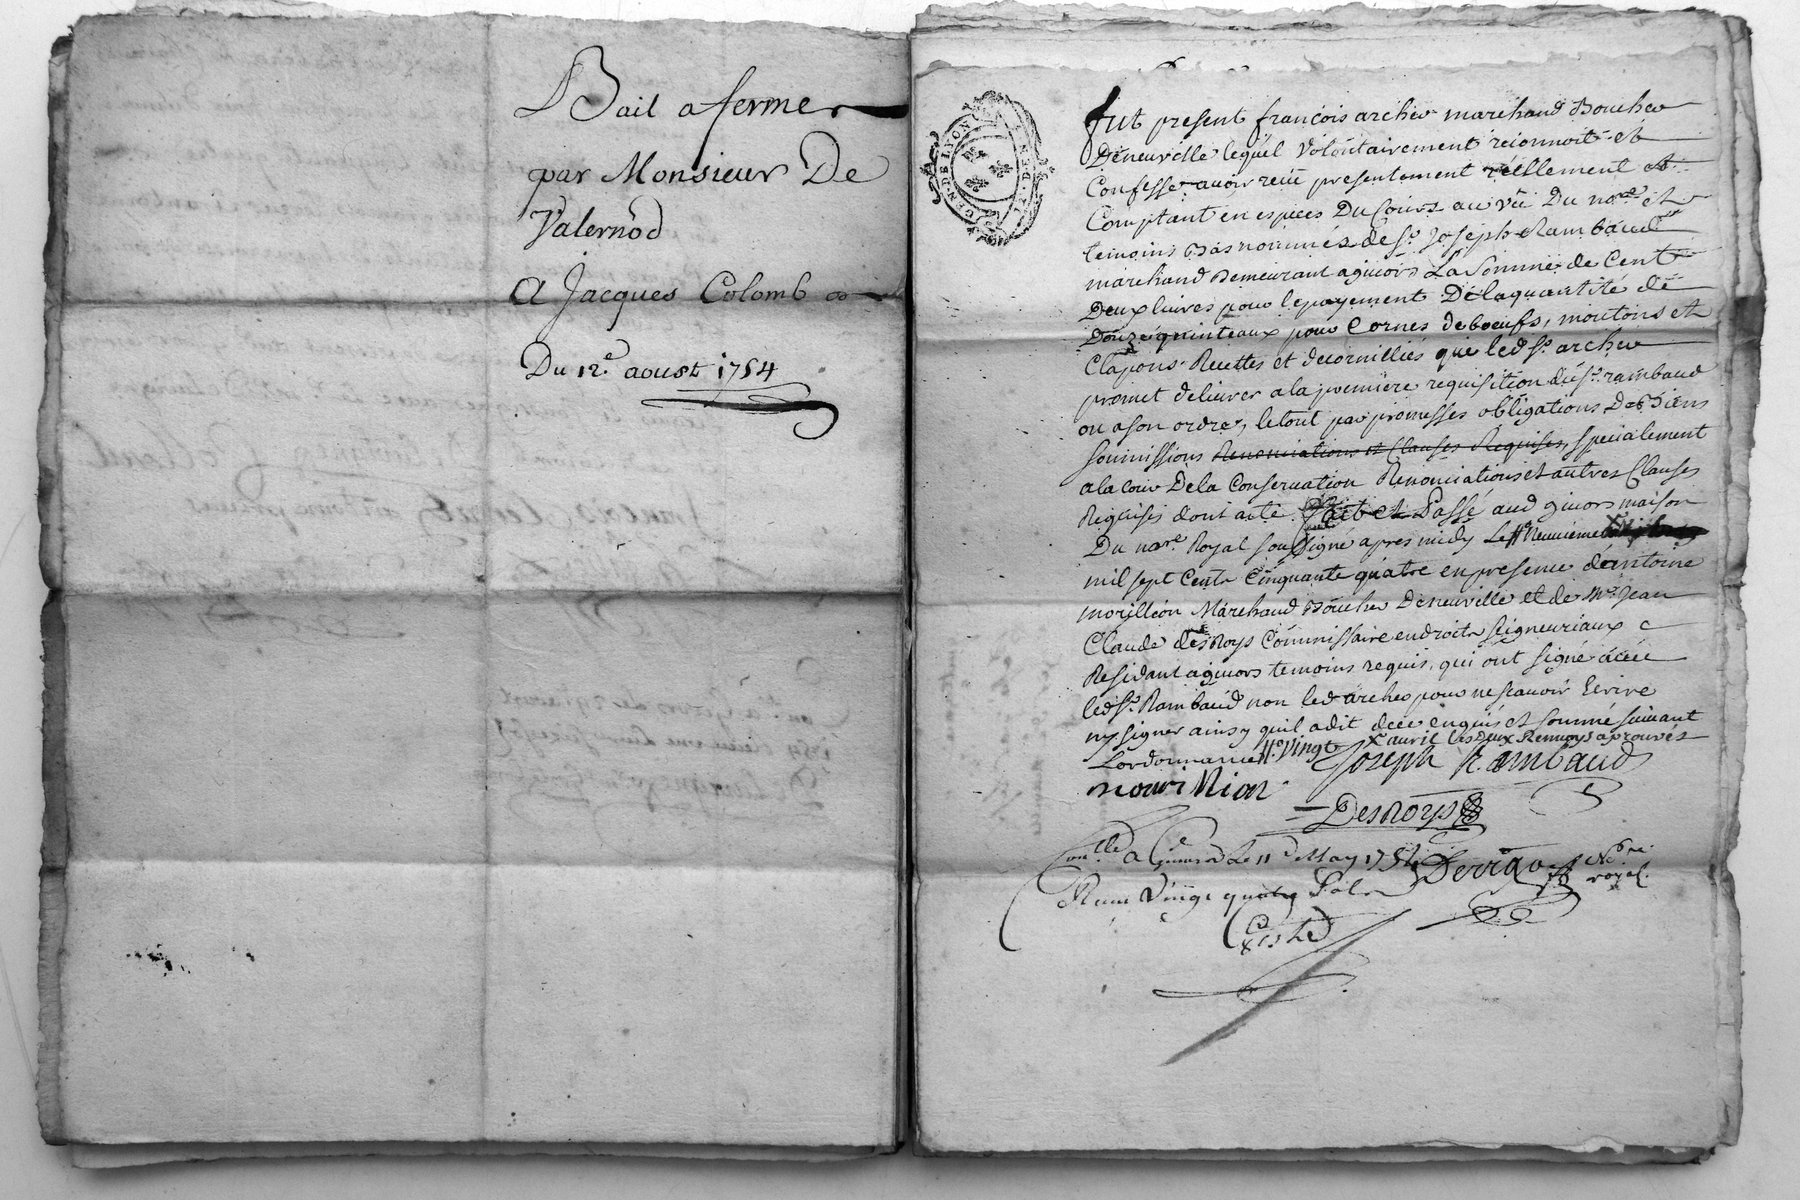 Bail a ferme
par Monsieur De
Valernod
A Jacques Colomb
Du 12e. aoust 1754
GEN. DE LYON
fut present françois archer marchand Boucher
Deneuville lequel volontairement reconnoit et
Confesse avoir reçu presentement réellement et
Comptant en especes Du Cours au vû Du nore. et
temoins Bas nommés de Sr. Joseph Rambaud
marchand Demeurant agivors La Somme de Cent
Deux livres pour lepayement Delaquantité de
Douze quinteaux pour Cornes de boeufs, moutons et
Clapons Recettes et decornilliés que led Sr. archer
promet delivrer ala premiere requisition duSr. rambaud
ou ason ordre, letout par promesses obligations De Biens
Soumissions Renonciations et Clauses Requises, specialement
ala Cour Dela Conservation Renonciations et autres Clauses
Requises dont acte. fait et Passé aud givors maison
Du nore. Royal Soussigné apres midy Le neuvieme
mil sept Cents Cinquante quatre en presence d'antoine
morillion Marchand Boucher Deneuville et de Me. Jean
Claude desRoys Commissaire endroits Seigneuriaux
Residant agivors temoins requis, qui ont signé avec
led Sr. Rambaud non led archer pour ne scavoir Ecrire
ny signer ainsy quil adit de ce enquis et sommé suivant
Lordonnance vingt avril les deux Renvoys aprouvés
Joseph Rambaud
mourillion
DesRoys
Conllé a Givors Le 11e May 1754
Reçu Vingt quatre Sols
Nore.
royal.